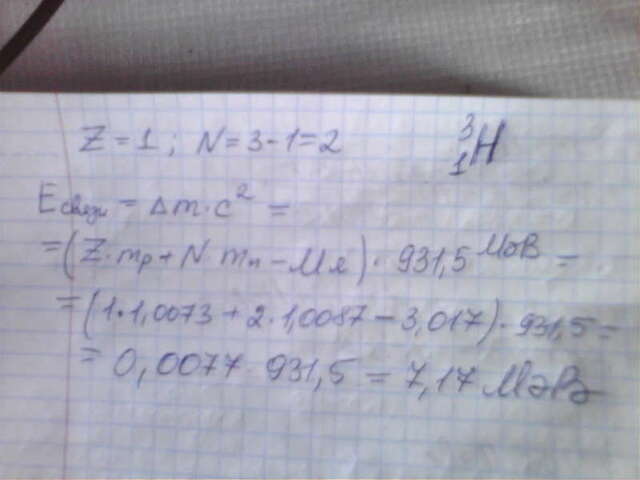 Z = 1 ; N = 3-1 = 2
³₁H
Eсвязи = Δm·c² =
= (Z·mp + N·mn - Mя) · 931,5 МэВ =
= (1·1,0073 + 2·1,0087 - 3,017) · 931,5 =
= 0,0077 · 931,5 = 7,17 МэВ